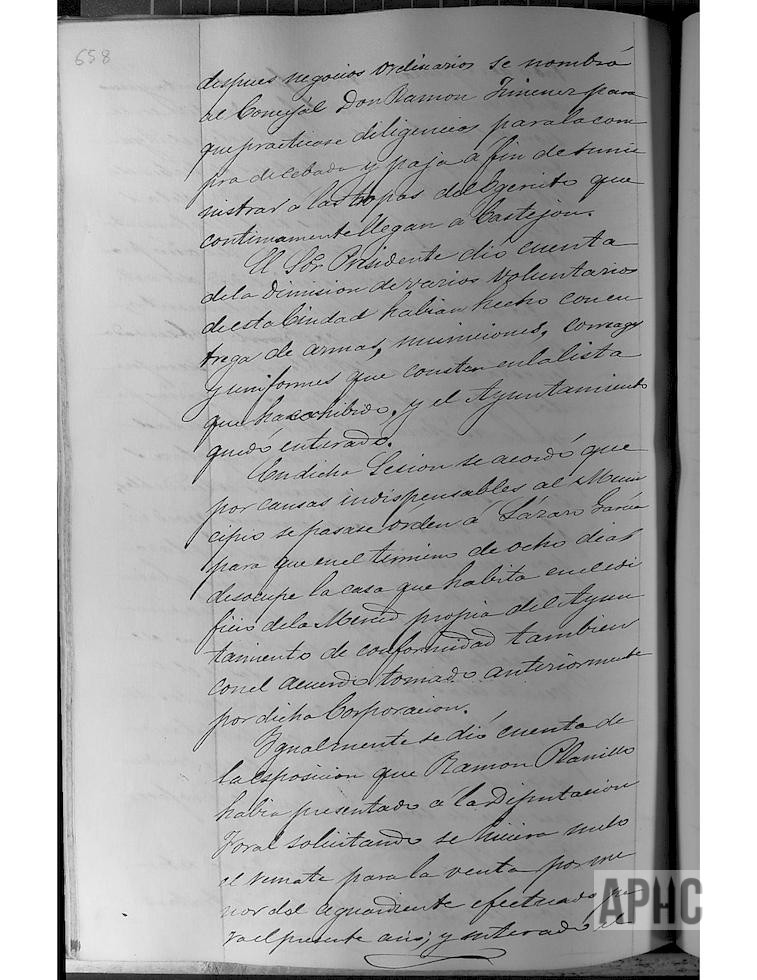 658
despues negocios ordinarios se nombró
al Concejál Don Ramon Jimenez para
que practicase diligencias para la com
pra de cebada y paja a fin de sumi
nistrar a las tropas del Egercito que
continuamente llegan a Castejon.
El Sor. Presidente dió cuenta
de la dimision de varios voluntarios
de esta Ciudad habian hecho con en
trega de armas, municiones, correage
y uniformes que constan en la lista
que ha exhibido, y el Ayuntamiento
quedó enterado.
En dicha Sesion se acordó que
por causas indispensables al Muni
cipio se pasase órden á Lázaro Garcia
para que en el termino de ocho dias
desocupe la casa que habita en el edi
ficio de la Merced propia del Ayun
tamiento de conformidad tambien
con el acuerdo tomado anteriormente
por dicha Corporacion.
Igualmente se dió cuenta de
la esposicion que Ramon Planillo
habia presentado á la Diputacion
Foral solicitando se hiciera nulo
el remate para la venta por me
nor del aguardiente efectuado pa
ra el presente año; y enterado el
APHC